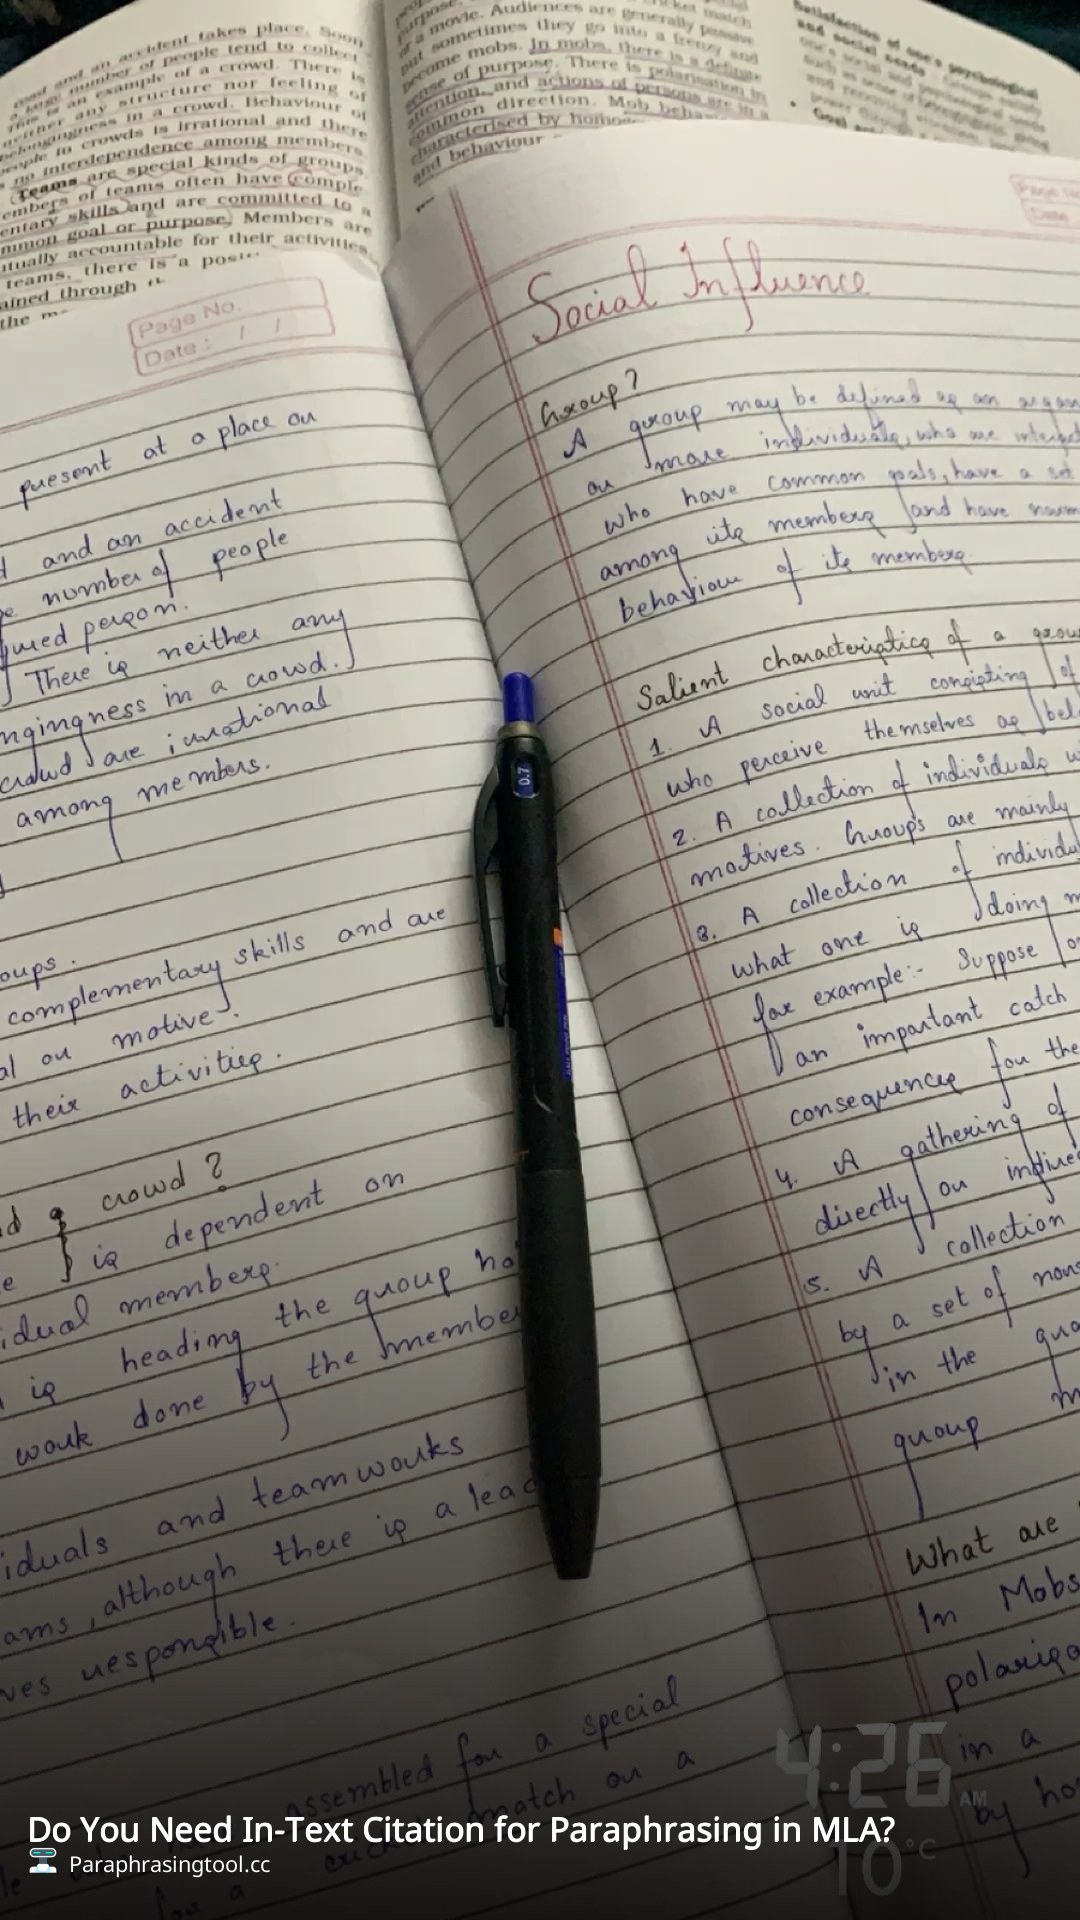 road and an accident takes place. Soon
a large number of people tend to collect.
This is an example of a crowd. There is
neither any structure nor feeling of
belongingness in a crowd. Behaviour of
people in crowds is irrational and there
is no interdependence among members.
Teams are special kinds of groups.
Members of teams often have comple
mentary skills and are committed to a
common goal or purpose. Members are
mutually accountable for their activities.
teams, there is a posi
ained through
the m
purpose.
or a movie. Audiences are generally passive
but sometimes they go into a frenzy and
become mobs. In mobs, there is a definite
sense of purpose. There is polarisation in
attention, and actions of persons are in a
common direction. Mob behav
characterised by homog
and behaviour
Satisfaction of one's psychological
and social needs
Page No.
Date : / /
present at a place or
and an accident
number of people
jured person.
There is neither any
ngingness in a crowd.
crowd are irrational
among members.
oups.
complementary skills and are
al or motive.
their activities.
crowd ?
is dependent on
idual members.
is heading the group ha
work done by the member
iduals and teamworks
ams, although there is a lead
ves responsible.
assembled for a special
match or a
for a
Page No
Date
Social Influence
Group ?
A group may be defined as an organ
or more individuals, who are interact
who have common goals, have a set
among its members and have norm
behaviour of its members.
Salient characteristics of a grou
1. A social unit consisting of
who perceive themselves as bel
2. A collection of individuals w
motives. Groups are mainly
3. A collection of individu
what one is doing m
for example:- Suppose
an important catch
consequences for the
4. A gathering of
directly or indirec
5. A collection
by a set of norm
in the gro
group m
What are
In Mobs
polarisa
in a
by ho
0.7
4:26 AM
10°C
Do You Need In-Text Citation for Paraphrasing in MLA?
Paraphrasingtool.cc